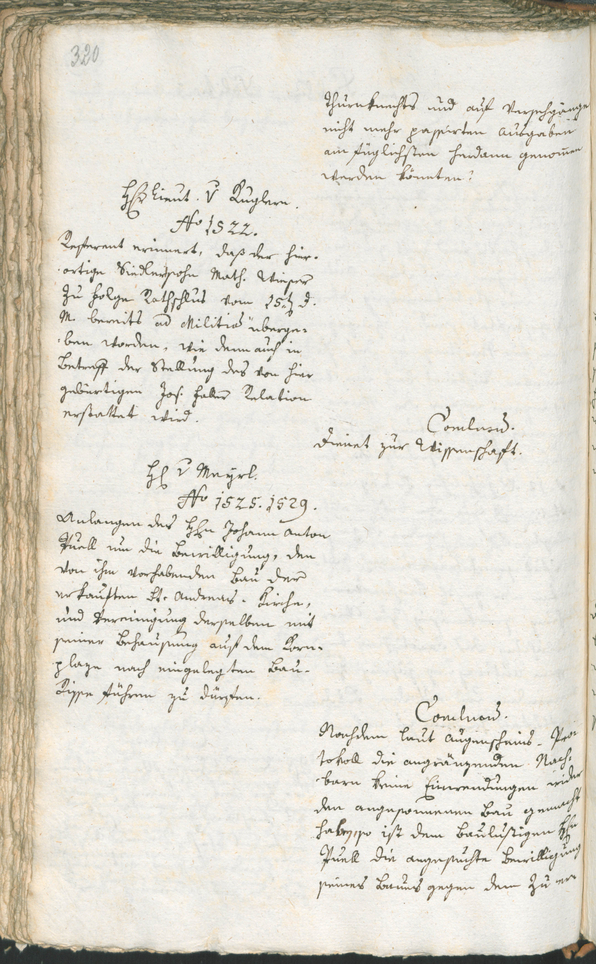 320
Thurnknechts und auf Verschgänge
nicht mehr passirten Ausgaben
am füglichsten herdann genomen
werden könnten?
Lieut. v Kuglern.
No 1522.
Referent erinnert, daß der hier-
ortige Siedlerssohn Math. Wieser
zu folge Rathschlus vom 15t d.
M. bereits ad Militiam überge-
ben worden, wie dann auch in
Betreff der Stellung des von hier
gebürtigen Jos. Haller Relation
erstattet wird.
Conclusum.
Dienet zur Wissenschaft.
H v Mayrl.
No 1525. 1529.
Anlangen des Hhn Johann Anton
Puell um die Bewilligung, den
von ihm vorhabenden Bau der
erkauften St: Andreas-Kirche,
und Vereinigung derselben mit
seiner Behausung auf dem Korn-
plaze nach eingelegten Bau-
Risse führen zu dürfen.
Conclusum.
Nachdem laut Augenscheins-Pro-
tokoll die angränzenden Nach-
barn keine Einwendungen wider
den angesonnenen Bau gemacht
haben so ist dem Baulustigen Hhn
Puell die angesuchte Bewilligung
seines Baues gegen dem zu er-